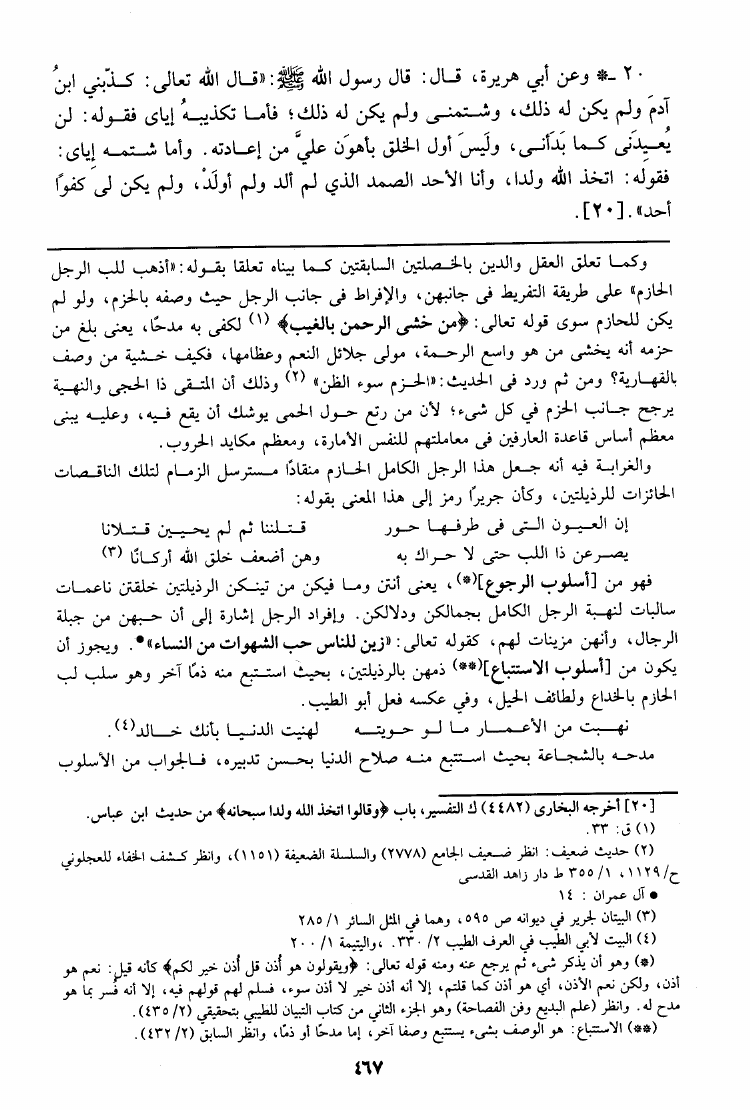 ٢٠ ـ* وعن أبي هريرة، قـال: قال رسول الله ﷺ:«قـال الله تعالى: كـذّبني ابنُ
آدمَ ولم يكن له ذلك، وشـتمنـى ولم يكن له ذلك؛ فأمـا تكذيبـهُ إياى فقـوله: لن
يُعـيدَنى كـما بَدَأنـى، ولَيسَ أول الخلق بأهونَ علىَّ من إعـادته. وأما شـتمـه إِياى:
فقوله: اتخذ الله ولدا، وأنا الأحد الصمد الذي لم ألد ولم أولَدْ، ولم يكن لى كفوًا
أحد».[٢٠].
وكمـا تعلق العقل والدين بالخـصلتين السابقتين كـما بيناه تعلقا بقـوله:«أذهب للب الرجل
الحازم» على طريقة التفريط فى جانبهن، والإفراط فى جانب الرجل حيث وصفه بالحزم، ولو لم
يكن للحازم سوى قوله تعالى: ﴿من خشى الرحمن بالغيب﴾ (١) لكفى به مدحًا، يعنى بلغ من
حزمه أنه يخشى من هو واسع الرحـمة، مولى جلائل النعم وعظامها، فكيف خـشية من وصف
بالقهارية؟ ومن ثم ورد فى الحديث:«الحـزم سوء الظن» (٢) وذلك أن المتـقى ذا الحجى والنهـية
يرجح جـانب الحزم في كل شىء؛ لأن من رتع حـول الحمى يوشك أن يقع فـيه، وعليـه يبنى
معظم أساس قاعدة العارفين فى معاملتهم للنفس الأمارة، ومعظم مكايد الحروب.
والغرابـة فيه أنه جـعل هذا الرجل الكامل الحـازم منقادًا مـسترسل الزمـام لتلك الناقـصات
الحائزات للرذيلتين، وكأن جريرًا رمز إلى هذا المعنى بقوله:
إن العـيـون الـتى فى طرفـهـا حـور قـتـلننا ثم لم يحـيـين قـتـلانا
يصـرعن ذا اللب حتى لا حـراك به وهن أضعف خلق الله أركـانًا (٣)
فهو من [أسلوب الرجوع](*)، يعنى أنتن ومـا فيكن من تينـكن الرذيلتين خلقتن ناعمـات
سالبات لنهـبة الرجل الكامل بجمالكن ودلالكن. وإفراد الرجل إشارة إلى أن حـبهن من جبلة
الرجال، وأنهن مزينات لهم، كقوله تعالى: «زين للناس حب الشهوات من النساء»•. ويجوز أن
يكون من [أسلوب الاستتباع](**) ذمهن بالرذيلتين، بحيث استـتبع منه ذمًا آخر وهو سلب لب
الحازم بالخداع ولطائف الحيل، وفي عكسه فعل أبو الطيب.
نهـبت من الأعـمـار مـا لـو حـويتـه لهنيت الدنـيـا بأنك خـالد(٤).
مدحـه بالشجـاعة بحيث استـتبع منـه صلاح الدنيا بحـسن تدبيره، فـالجواب من الأسلوب
[٢٠] أخرجه البخارى (٤٤٨٢) ك التفسير، باب ﴿وقالوا اتخذ الله ولدا سبحانه﴾ من حديث ابن عباس.
(١) ق: ٣٣.
(٢) حديث ضعيف: انظر ضـعيف الجامع (٢٧٧٨) والسلسلة الضعيفة (١١٥١)، وانظر كـشف الخفاء للعجلوني
ح/١١٢٩، ١/ ٣٥٥ ط دار زاهد القدسى
• آل عمران : ١٤
(٣) البيتان لجرير في ديوانه ص ٥٩٥، وهما في المثل السائر ١/ ٢٨٥
(٤) البيت لأبي الطيب في العرف الطيب ٢/ ٣٣٠. ،واليتيمة ١/ ٢٠٠
(*) وهو أن يذكر شىء ثم يرجع عنه ومنه قوله تعالى: ﴿ويقولون هو أُذن قل أُذن خير لكم﴾ كأنه قيل: نعم هو
أذن، ولكن نعم الأذن، أي هو أذن كما قلتم، إلا أنه أذن خير لا أذن سوء، فسلم لهم قولهم فيه، إلا أنه فُسر بما هو
مدح له. وانظر (علم البديع وفن الفصاحة) وهو الجزء الثاني من كتاب التبيان للطيبي بتحقيقي (٢/ ٤٣٥).
(**) الاستتباع: هو الوصف بشىء يستتبع وصفا آخر، إما مدحًا أو ذمًا، وانظر السابق (٢/ ٤٣٢).
٤٦٧